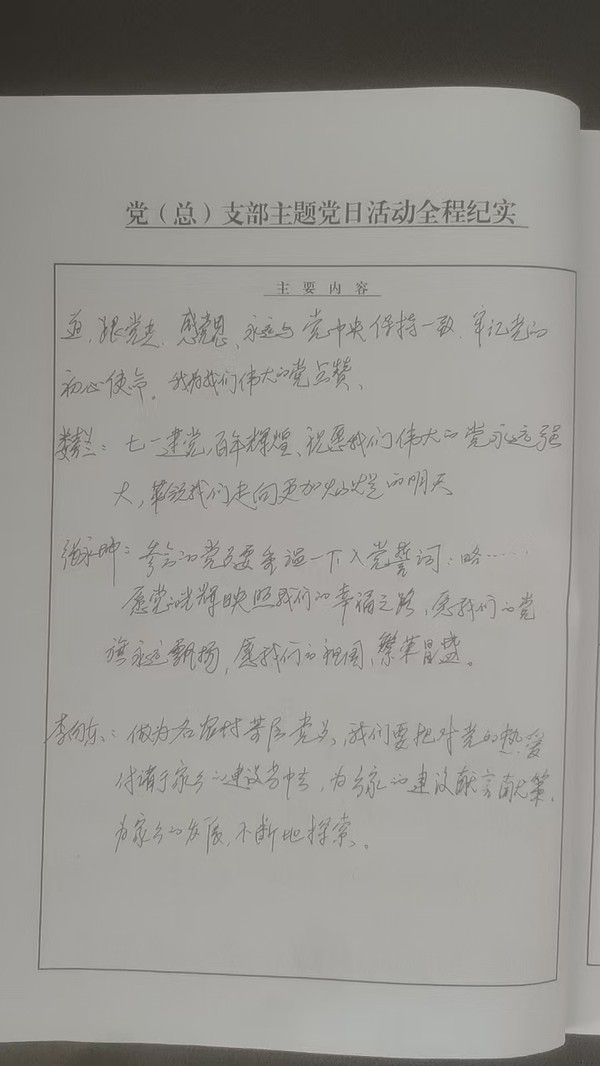 党（总）支部主题党日活动全程纪实
主 要 内 容
跟党走、感党恩、永远与党中央保持一致、牢记党的
初心使命。我为我们伟大的党点赞、
七一建党，百年辉煌、祝愿我们伟大的党永远强
大，带领我们走向更加灿烂的明天
张永帅：参会的党员要重温一下入党誓词：略……
愿党的光辉映照我们的幸福之路，愿我们的党
旗永远飘扬，愿我们的祖国，繁荣昌盛。
李向东：做为名农村基层党员，我们要把对党的热爱
付诸于家乡的建设当中去，为家乡的建设献言献策，
为家乡的发展，不断地探索。